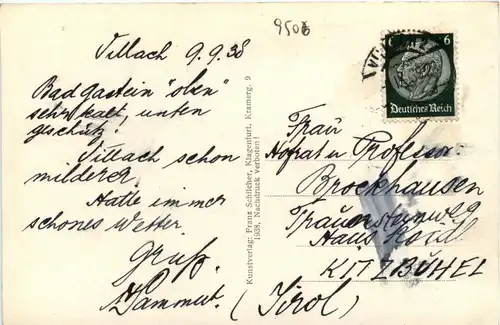 9506
Villach 9.9.38
Bad Gastein "oben"
sehr kalt, unten
geschützt!
Villach schon
milderer.
Hatte immer
schönes Wetter.
Gruß.
Kunstverlag: Franz Schilcher, Klagenfurt, Kramerg. 9
1938, Nachdruck verboten!
6
Deutsches Reich
Frau
Hofrat u. Professor
Brockhausen
Haus
KITZBÜHEL
(Tirol)